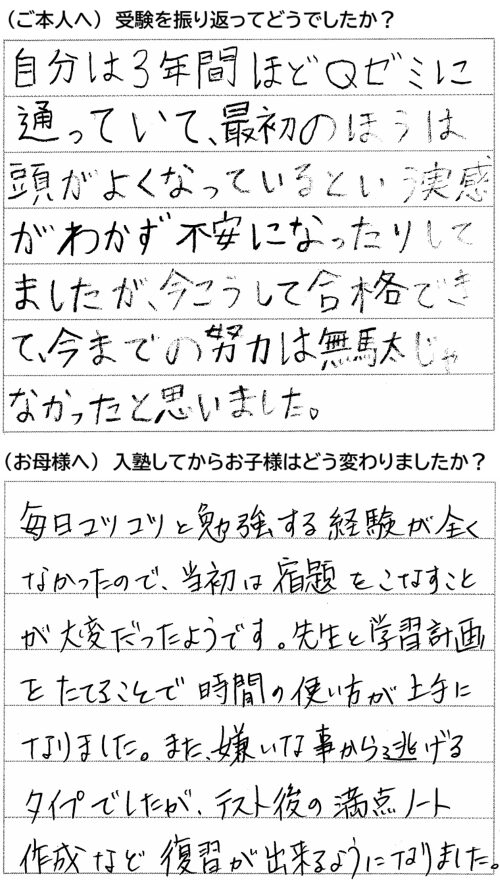 （ご本人へ）受験を振り返ってどうでしたか？
自分は3年間ほどQゼミに
通っていて、最初のほうは
頭がよくなっているという実感
がわかず不安になったりして
ましたが、今こうして合格でき
て、今までの努力は無駄じゃ
なかったと思いました。
（お母様へ）入塾してからお子様はどう変わりましたか？
毎日コツコツと勉強する経験が全く
なかったので、当初は宿題をこなすこと
が大変だったようです。先生と学習計画
をたてることで時間の使い方が上手に
なりました。また、嫌いな事から逃げる
タイプでしたが、テスト後の満点ノート
作成など復習が出来るようになりました。